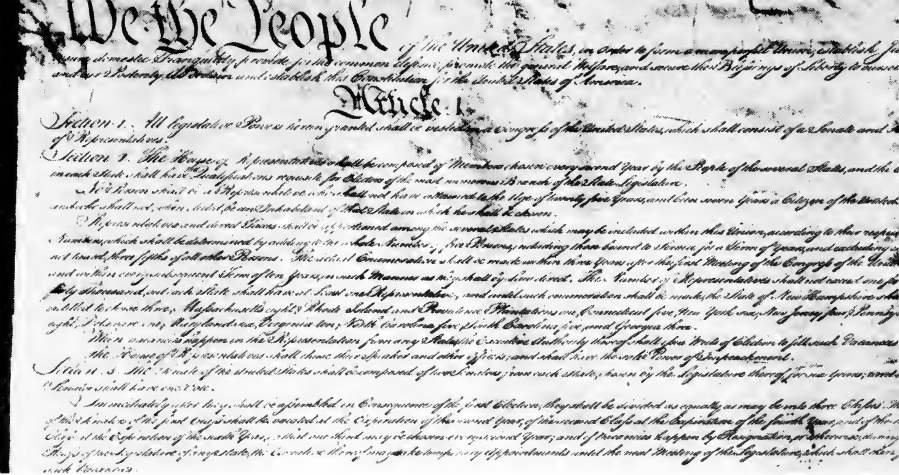 We the People
of the United States, in Order to form a more perfect Union, establish
domestic Tranquility, provide for the common defence, promote the general Welfare, and secure the Blessings of Liberty to ourselves
and our Posterity, do ordain and establish this Constitution for the United States of America.
Article. I.
Section. 1. All legislative Powers herein granted shall be vested in a Congress of the United States, which shall consist of a Senate and
of Representatives.
Section. 2. The House of Representatives shall be composed of Members chosen every second Year by the People of the several States, and the
in each State shall have the Qualifications requisite for Electors of the most numerous Branch of the State Legislature.
No Person shall be a Representative who shall not have attained to the Age of twenty five Years, and been seven Years a Citizen of the United
and who shall not, when elected, be an Inhabitant of that State in which he shall be chosen.
Representatives and direct Taxes shall be apportioned among the several States which may be included within this Union, according to their
Numbers, which shall be determined by adding to the whole Number of free Persons, including those bound to Service for a Term of Years, and excluding
not taxed, three fifths of all other Persons. The actual Enumeration shall be made within three Years after the first Meeting of the Congress of the
and within every subsequent Term of ten Years, in such Manner as they shall by Law direct. The Number of Representatives shall not exceed one for
thirty Thousand, but each State shall have at Least one Representative; and until such enumeration shall be made, the State of New Hampshire
entitled to chuse three, Massachusetts eight, Rhode Island and Providence Plantations one, Connecticut five, New York six, New Jersey four,
eight, Delaware one, Maryland six, Virginia ten, North Carolina five, South Carolina five, and Georgia three.
When vacancies happen in the Representation from any State, the Executive Authority thereof shall issue Writs of Election to fill such Vacancies.
The House of Representatives shall chuse their Speaker and other Officers; and shall have the sole Power of Impeachment.
Section. 3. The Senate of the United States shall be composed of two Senators from each State, chosen by the Legislature thereof, for six Years; and
Senator shall have one Vote.
Immediately after they shall be assembled in Consequence of the first Election, they shall be divided as equally as may be into three Classes.
of the Senators of the first Class shall be vacated at the Expiration of the second Year, of the second Class at the Expiration of the fourth Year, and of the
Class at the Expiration of the sixth Year, so that one third may be chosen every second Year; and if Vacancies happen by Resignation, or otherwise, during
Recess of the Legislature of any State, the Executive thereof may make temporary Appointments until the next Meeting of the Legislature, which shall then
such Vacancies.